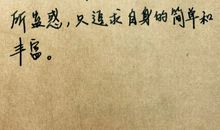 所蛊惑，只追求自身的简单和
丰富。